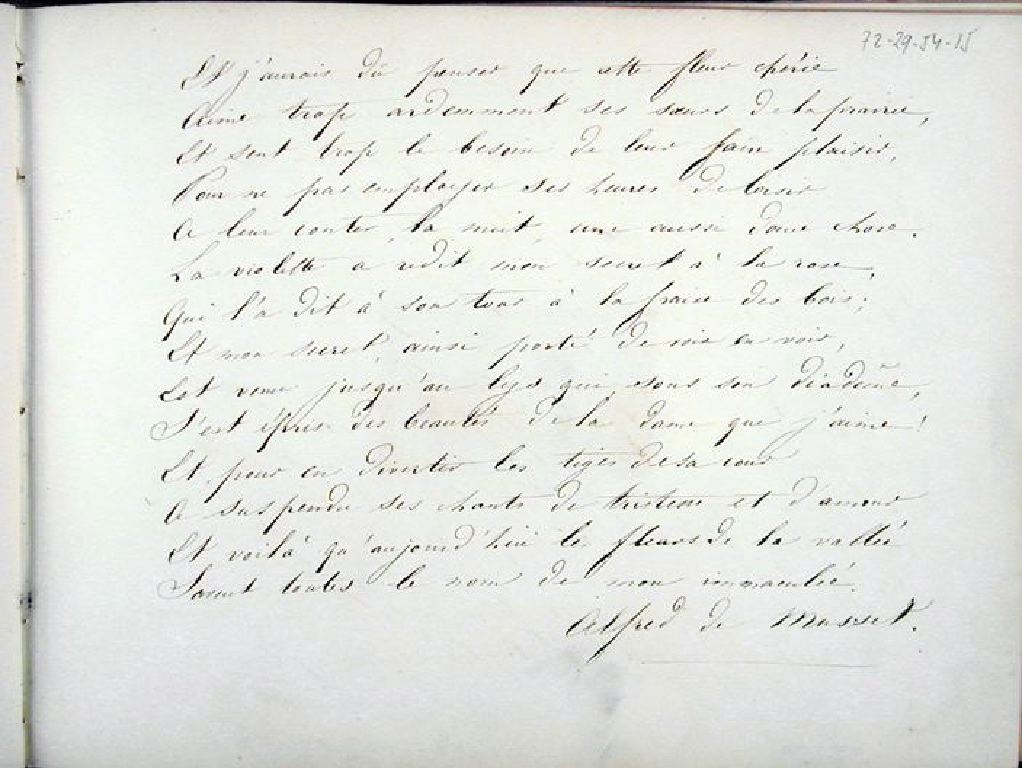 72-29-54-15
Et j'aurais dû penser que cette fleur chérie
Aime trop ardemment ses sœurs de la prairie,
Et sent trop le besoin de leur faire plaisir,
Pour ne pas employer ses heures de loisir
A leur conter, la nuit, une aussi douce chose.
La violette a redit mon secret à la rose,
Qui l'a dit à son tour à la fraise des bois;
Et mon secret, ainsi porté de voix en voix,
Est venu jusqu'au lys qui, sous son diadème,
S'est épris des beautés de la dame que j'aime!
Et pour en divertir les tiges de sa cour
A suspendu ses chants de tristesse et d'amour
Et voilà qu'aujourd'hui les fleurs de la vallée
Savent toutes le nom de mon immaculée.
Alfred de Musset.